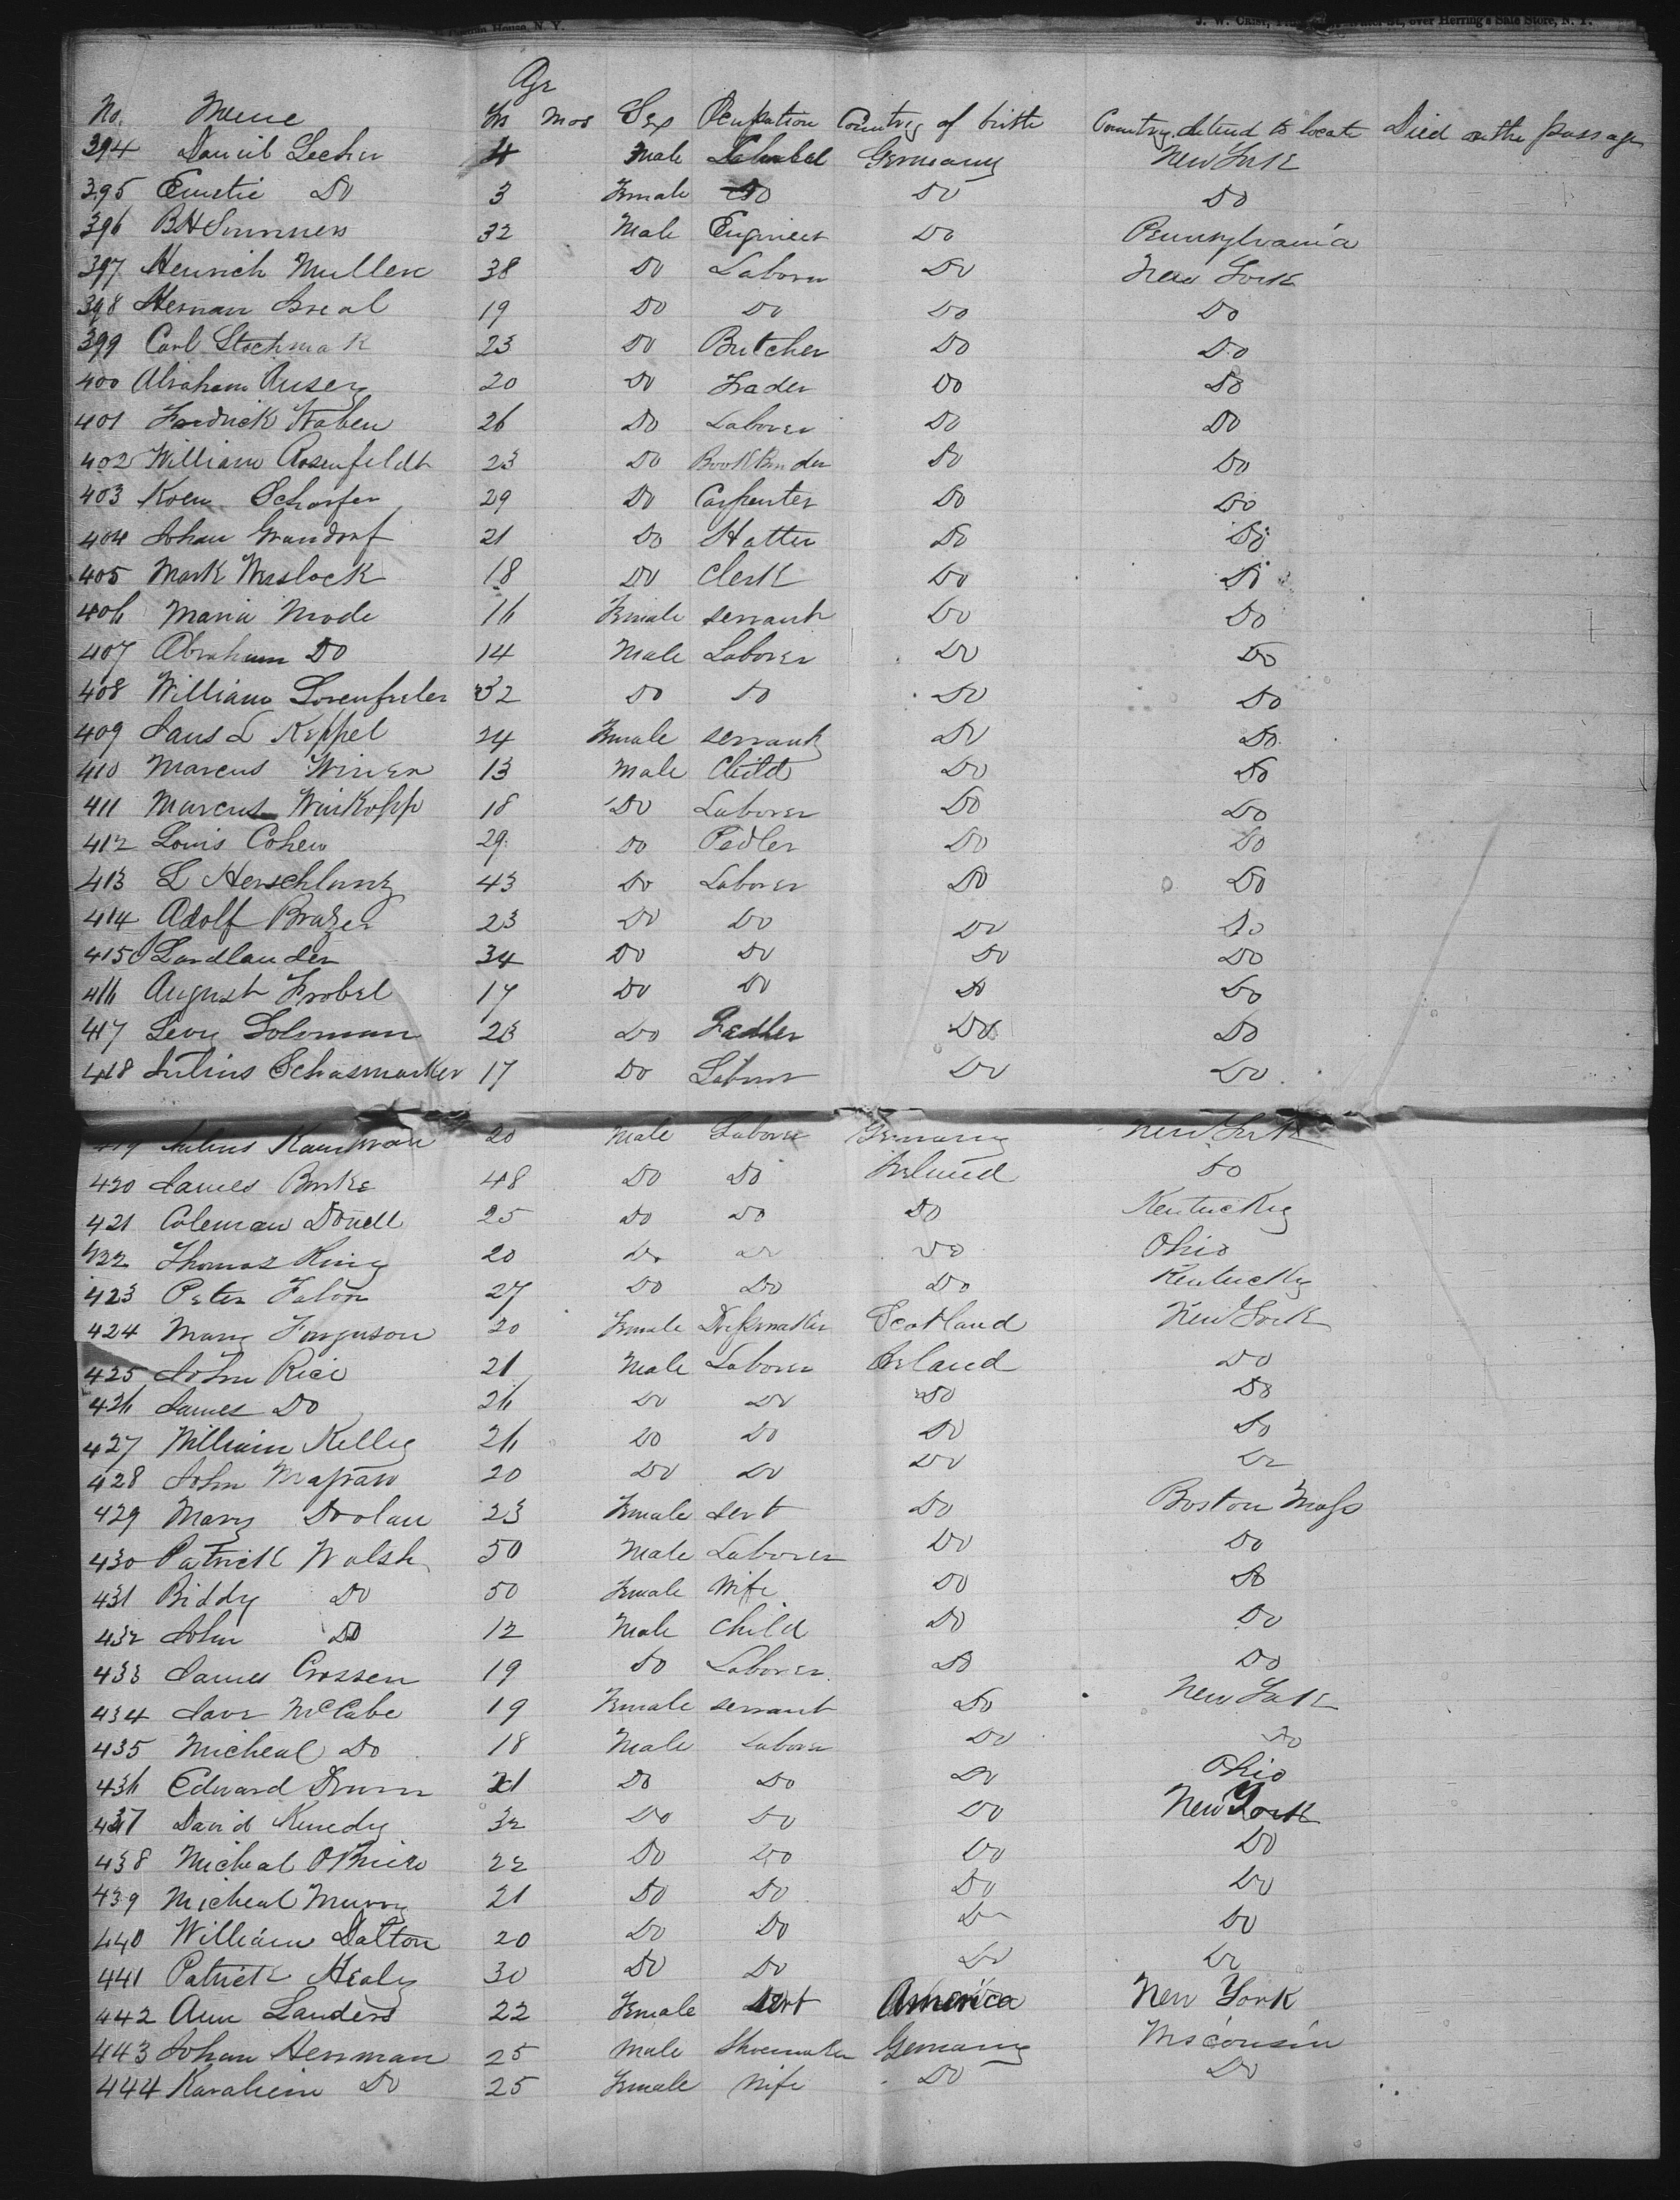 J. W. Crist, over Herring's Safe Store, N. Y.
House, N. Y.
Age
No. Name Yrs Mos Sex Ocupation Country of birth Country intend to locate Died on the passage
394 Daniel Lecher 4 Male Germany New York
395 Do 3 Female Do Do Do
396 BH 32 Male Engineer Do Pennsylvania
397 Henrich Muller 38 Do Laborer Do New York
398 Herman 19 Do Do Do Do
399 Carl Stochmak 23 Do Butcher Do Do
400 Abraham 20 Do Trader Do Do
401 Fredrick Waben 26 Do Laborer Do Do
402 William Rosenfeldt 23 Do Bookbinder Do Do
403 Scharfer 29 Do Carpenter Do Do
404 Johan Grandorf 21 Do Hatter Do Do
405 Mark 18 Do Clerk Do Do
406 Maria Mode 16 Female servant Do Do
407 Abraham Do 14 Male Laborer Do Do
408 William 32 Do Do Do Do
409 Keppel 24 Female servant Do Do
410 Marcus Winer 13 Male Child Do Do
411 Marcus Winkopp 18 Do Laborer Do Do
412 Louis Cohen 29 Do Pedler Do Do
413 L 43 Do Laborer Do Do
414 Adolf Brazer 23 Do Do Do Do
415 Landlander 34 Do Do Do Do
416 August Frobel 17 Do Do Do Do
417 Levy Soloman 23 Do Do Do
418 Julius Schasmarker 17 Do Labour Do Do
419 Julius 20 Male Laborer Germany New York
420 James Burke 48 Do Do Ireland Do
421 Coleman Donell 25 Do Do Do Kentucky
422 Thomas King 20 Do Do Do Ohio
423 Peter Falon 27 Do Do Do Kentucky
424 Mary Furguson 20 Female Dressmaker Scotland New York
425 John Rice 21 Male Laborer Ireland Do
426 James Do 26 Do Do Do Do
427 William Kelly 26 Do Do Do Do
428 John 20 Do Do Do Do
429 Mary Doolan 23 Female servt Do Boston Mass
430 Patrick Walsh 50 Male Laborer Do Do
431 Biddy Do 50 Female Wife Do Do
432 John Do 12 Male Child Do Do
433 James Crossen 19 Do Laborer Do Do
434 McCabe 19 Female servant Do New York
435 Micheal Do 18 Male Laborer Do Do
436 Edward Drum 21 Do Do Do Ohio
437 David Kenedy 32 Do Do Do New York
438 Micheal OBrien 22 Do Do Do Do
439 Micheal Murry 21 Do Do Do Do
440 William Dalton 20 Do Do Do Do
441 Patrick Healy 30 Do Do Do Do
442 Ann Landers 22 Female Servt America New York
443 Johan Herrman 25 Male Shoemaker Germany Wisconsin
444 Do 25 Female Wife Do Do